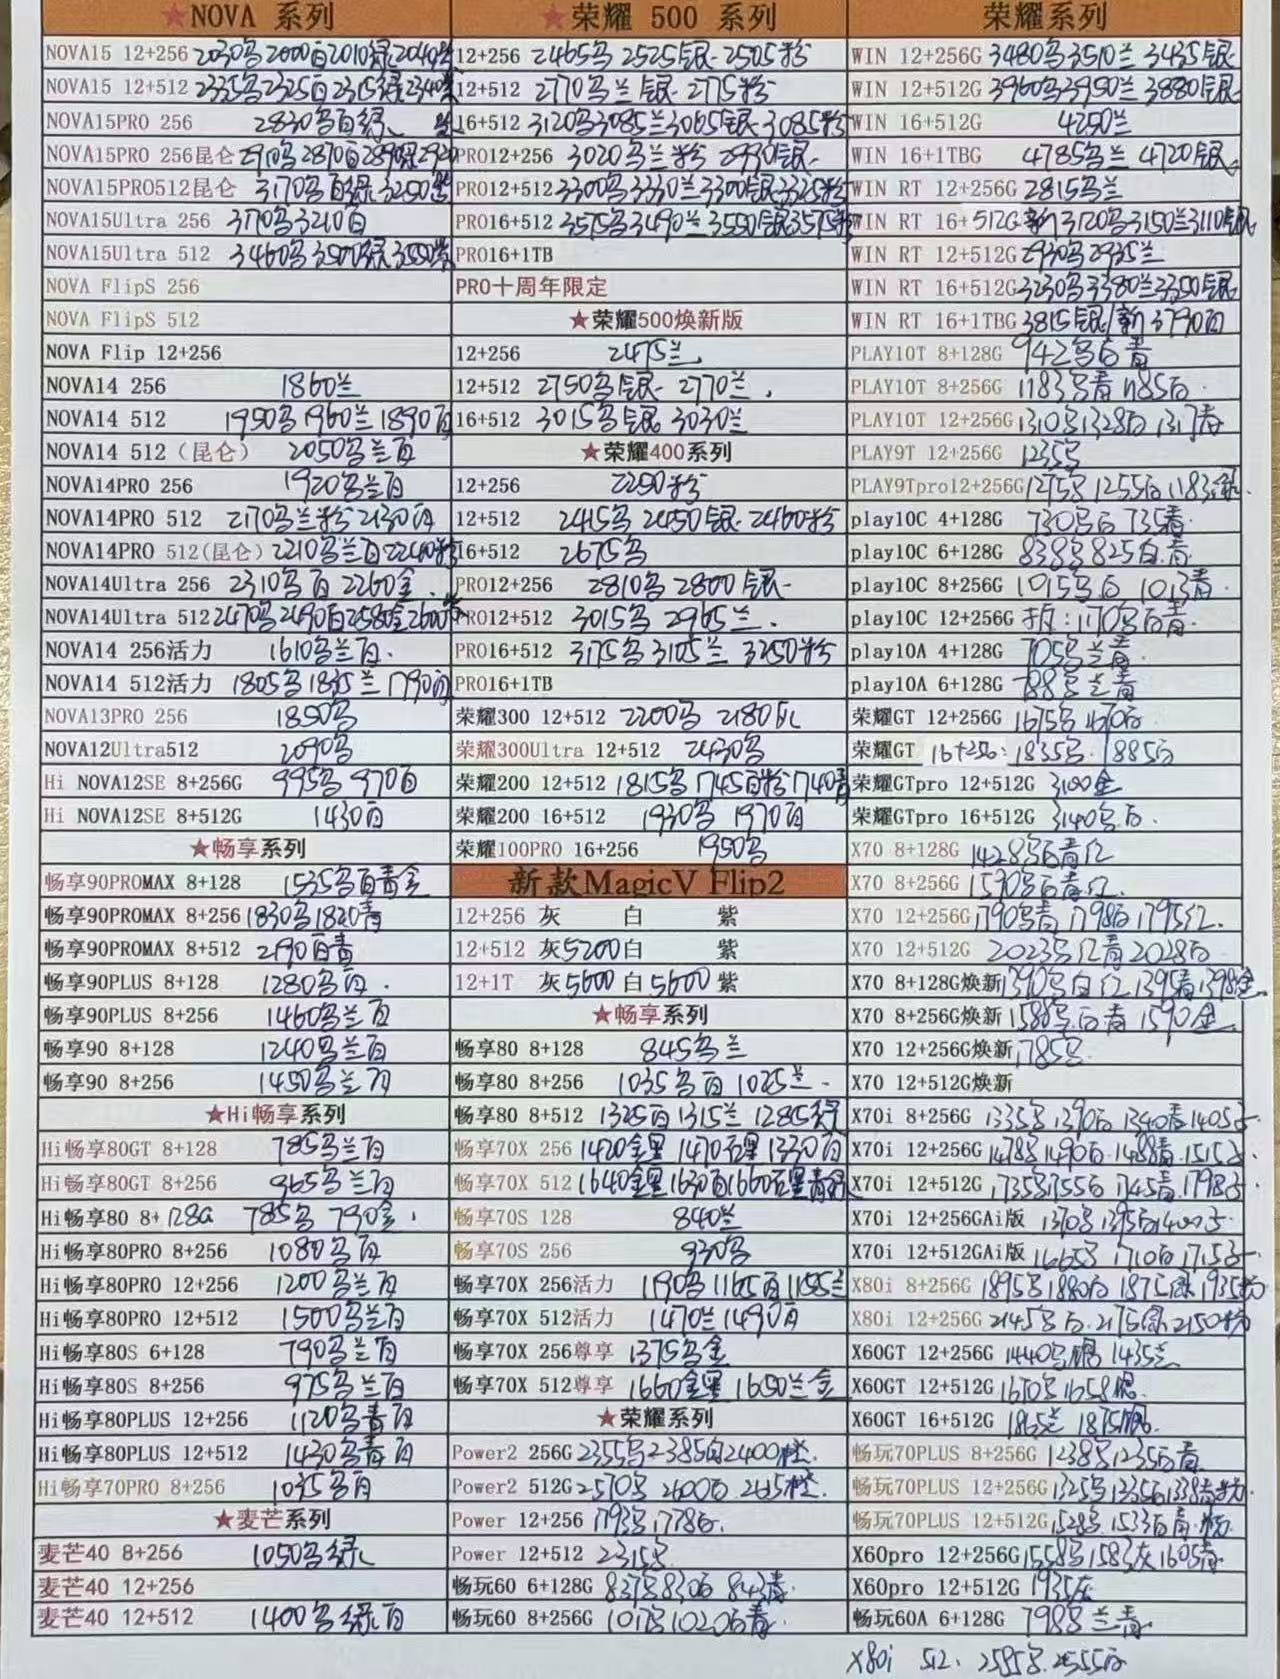 ★NOVA 系列
NOVA15 12+256 2030乌2000白2010绿2040紫
NOVA15 12+512 2335乌2325白2315绿2340紫
NOVA15PRO 256 2830乌白绿 紫
NOVA15PRO 256昆仑 2910乌2870白2890绿2920
NOVA15PRO512昆仑 3170乌白绿3250紫
NOVA15Ultra 256 3170乌3210白
NOVA15Ultra 512 3460乌3500绿3550紫
NOVA FlipS 256
NOVA FlipS 512
NOVA Flip 12+256
NOVA14 256 1860兰
NOVA14 512 1950乌1960兰1890白
NOVA14 512（昆仑） 2050乌兰白
NOVA14PRO 256 1920乌兰白
NOVA14PRO 512 2170乌兰粉2130白
NOVA14PRO 512(昆仑) 2210乌兰白2240粉
NOVA14Ultra 256 2310乌白2260金
NOVA14Ultra 512 2470乌2490白2580金2600
NOVA14 256活力 1610乌兰白
NOVA14 512活力 1805乌1835兰1790白
NOVA13PRO 256 1850乌
NOVA12Ultra512 2090乌
Hi NOVA12SE 8+256G 995乌970白
Hi NOVA12SE 8+512G 1430白
★畅享系列
畅享90PROMAX 8+128 1535乌白青金
畅享90PROMAX 8+256 1830乌1820青
畅享90PROMAX 8+512 2190白青
畅享90PLUS 8+128 1280乌白
畅享90PLUS 8+256 1460乌兰白
畅享90 8+128 1240乌兰白
畅享90 8+256 1450乌兰白
★Hi畅享系列
Hi畅享80GT 8+128 785乌兰白
Hi畅享80GT 8+256 965乌兰白
Hi畅享80 8+128G 785乌 790金
Hi畅享80PRO 8+256 1080乌白
Hi畅享80PRO 12+256 1200乌兰白
Hi畅享80PRO 12+512 1500乌兰白
Hi畅享80S 6+128 790乌兰白
Hi畅享80S 8+256 975乌兰白
Hi畅享80PLUS 12+256 1120乌青白
Hi畅享80PLUS 12+512 1430乌青白
Hi畅享70PRO 8+256 1035乌白
★麦芒系列
麦芒40 8+256 1050乌绿
麦芒40 12+256
麦芒40 12+512 1400乌绿白
★荣耀 500 系列
12+256 2465乌2525银2505粉
12+512 2770乌兰银2775粉
16+512 3120乌3085兰3065银3085粉
PRO12+256 3020乌兰粉2990银
PRO12+512 3300乌3330兰3300银3325粉
PRO16+512 3575乌3490兰3550银3575粉
PRO16+1TB
PRO十周年限定
★荣耀500焕新版
12+256 2475兰
12+512 2750乌银 2770兰
16+512 3015乌银 3030兰
★荣耀400系列
12+256 2250粉
12+512 2415乌2450银2460粉
16+512 2675乌
PRO12+256 2810乌2800银
PRO12+512 3015乌2965兰
PRO16+512 3175乌3105兰3250粉
PRO16+1TB
荣耀300 12+512 2200乌 2180
荣耀300Ultra 12+512 2430乌
荣耀200 12+512 1815乌1745白粉1740青
荣耀200 16+512 1930乌1970白
荣耀100PRO 16+256 1950乌
新款MagicV Flip2
12+256 灰 白 紫
12+512 灰5200白 紫
12+1T 灰5600白5600紫
★畅享系列
畅享80 8+128 845乌兰
畅享80 8+256 1035乌白1025兰
畅享80 8+512 1325白1315兰1285绿
畅享70X 256 1420金黑1470石黑1330白
畅享70X 512 1640金黑1630白1660石黑青
畅享70S 128 840兰
畅享70S 256 930乌
畅享70X 256活力 1190乌1165白1155兰
畅享70X 512活力 1470兰1490白
畅享70X 256尊享 1375乌金
畅享70X 512尊享 1660金黑1650兰金
★荣耀系列
Power2 256G 2355乌2385白2400橙
Power2 512G 2570乌2600白2615橙
Power 12+256 1793乌1778白
Power 12+512 2315乌
畅玩60 6+128G 837乌830白843青
畅玩60 8+256G 1017乌1020白青
荣耀系列
WIN 12+256G 3480乌3510兰3435银
WIN 12+512G 3960乌3950兰3880银
WIN 16+512G 4250兰
WIN 16+1TBG 4785乌兰4720银
WIN RT 12+256G 2815乌兰
WIN RT 16+512G 新3120乌3150兰3110银
WIN RT 12+512G 2930乌2935兰
WIN RT 16+512G 3230乌3380兰3350银
WIN RT 16+1TBG 3815银/新3790白
PLAY10T 8+128G 942乌白青
PLAY10T 8+256G 1183乌青1185白
PLAY10T 12+256G 1310乌1328白1317青
PLAY9T 12+256G 1235乌
PLAY9Tpro12+256G 1275乌1255白1183金
play10C 4+128G 730乌白735青
play10C 6+128G 838乌825白青
play10C 8+256G 1015乌白1013青
play10C 12+256G 1170乌白青
play10A 4+128G 705乌兰青
play10A 6+128G 788乌兰青
荣耀GT 12+256G 1675乌1670白
荣耀GT 16+256：1835乌1885白
荣耀GTpro 12+512G 3100金
荣耀GTpro 16+512G 3140乌白
X70 8+128G 1428乌白青红
X70 8+256G 1570乌白青红
X70 12+256G 1790乌青1798白1795红
X70 12+512G 2023乌红青2028白
X70 8+128G焕新1390乌白红1395青1398金
X70 8+256G焕新1588乌白青1590金
X70 12+256G焕新1785乌
X70 12+512G焕新
X70i 8+256G 1335乌1390白1340青1405
X70i 12+256G 1478乌1490白1488青1515
X70i 12+512G 1735乌1755白1745青1798
X70i 12+256GAi版 1370乌1395白1400
X70i 12+512GAi版 1665乌1710白1715
X80i 8+256G 1895乌1880白1875绿1935粉
X80i 12+256G 2145乌白2175绿2150粉
X60GT 12+256G 1440乌 1435兰
X60GT 12+512G 1670乌1658
X60GT 16+512G 1865兰1875
畅玩70PLUS 8+256G 1238乌1235白青
畅玩70PLUS 12+256G 1325乌1335白1338青粉
畅玩70PLUS 12+512G 1528乌1533白青粉
X60pro 12+256G 1558乌1583灰1605青
X60pro 12+512G 1935灰
畅玩60A 6+128G 798乌兰青
X80i 512 2585乌2555白